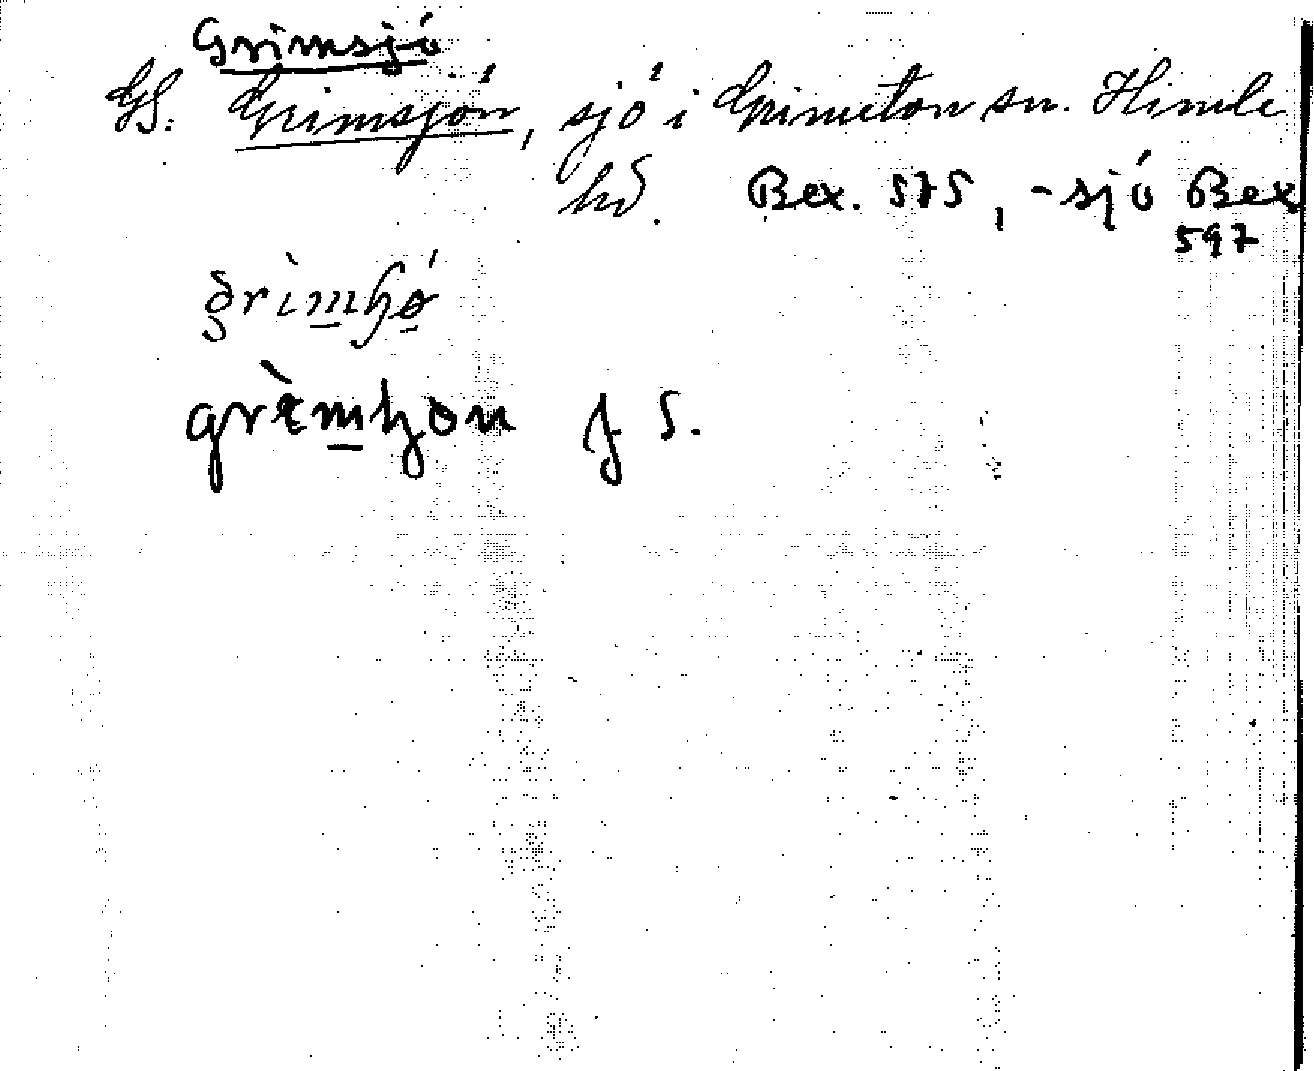 Grimsjö
GS. Grimsjön, sjö i Grimeton sn. Himle
hd. Bex. 575, -sjö Bex
597
J S.